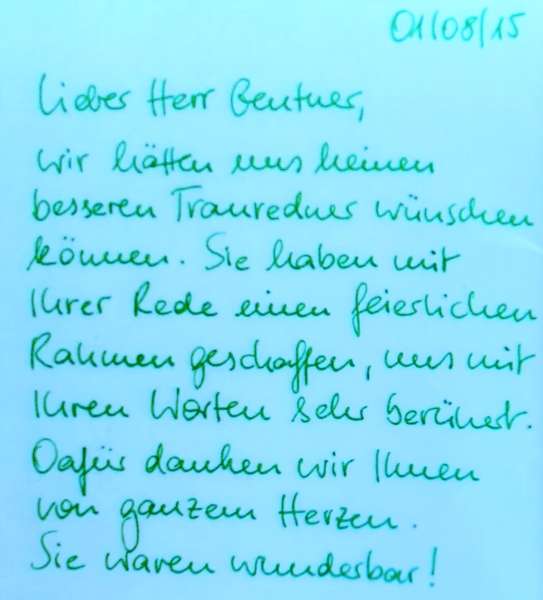 01/08/15
Lieber Herr Gentner,
wir hätten uns keinen
besseren Trauredner wünschen
können. Sie haben mit
Ihrer Rede einen feierlichen
Rahmen geschaffen, uns mit
Ihren Worten sehr berührt.
Dafür danken wir Ihnen
von ganzem Herzen.
Sie waren wunderbar!